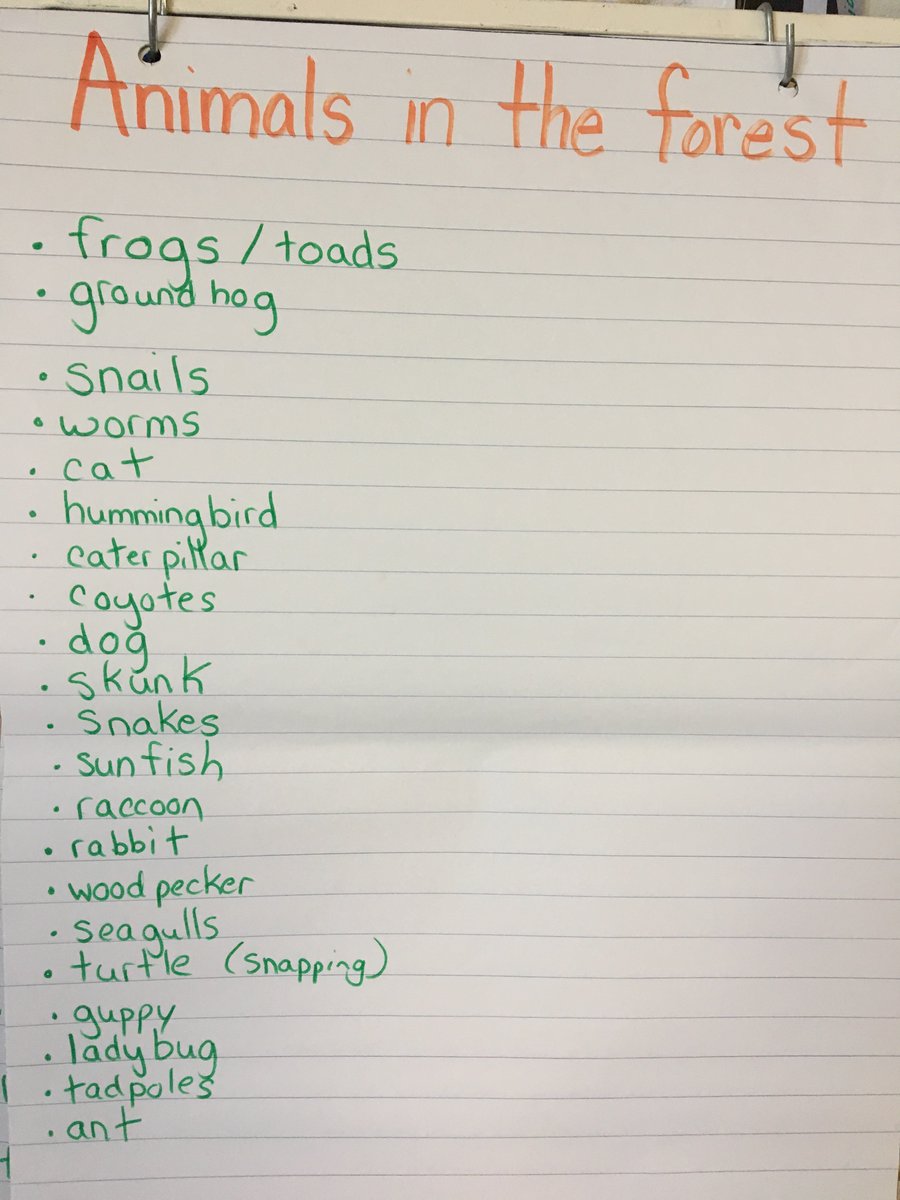 Animals in the forest
• frogs / toads
• ground hog
• snails
• worms
• cat
• hummingbird
• caterpillar
• coyotes
• dog
• skunk
• snakes
• sunfish
• raccoon
• rabbit
• woodpecker
• seagulls
• turtle (snapping)
• guppy
• ladybug
• tadpoles
• ant